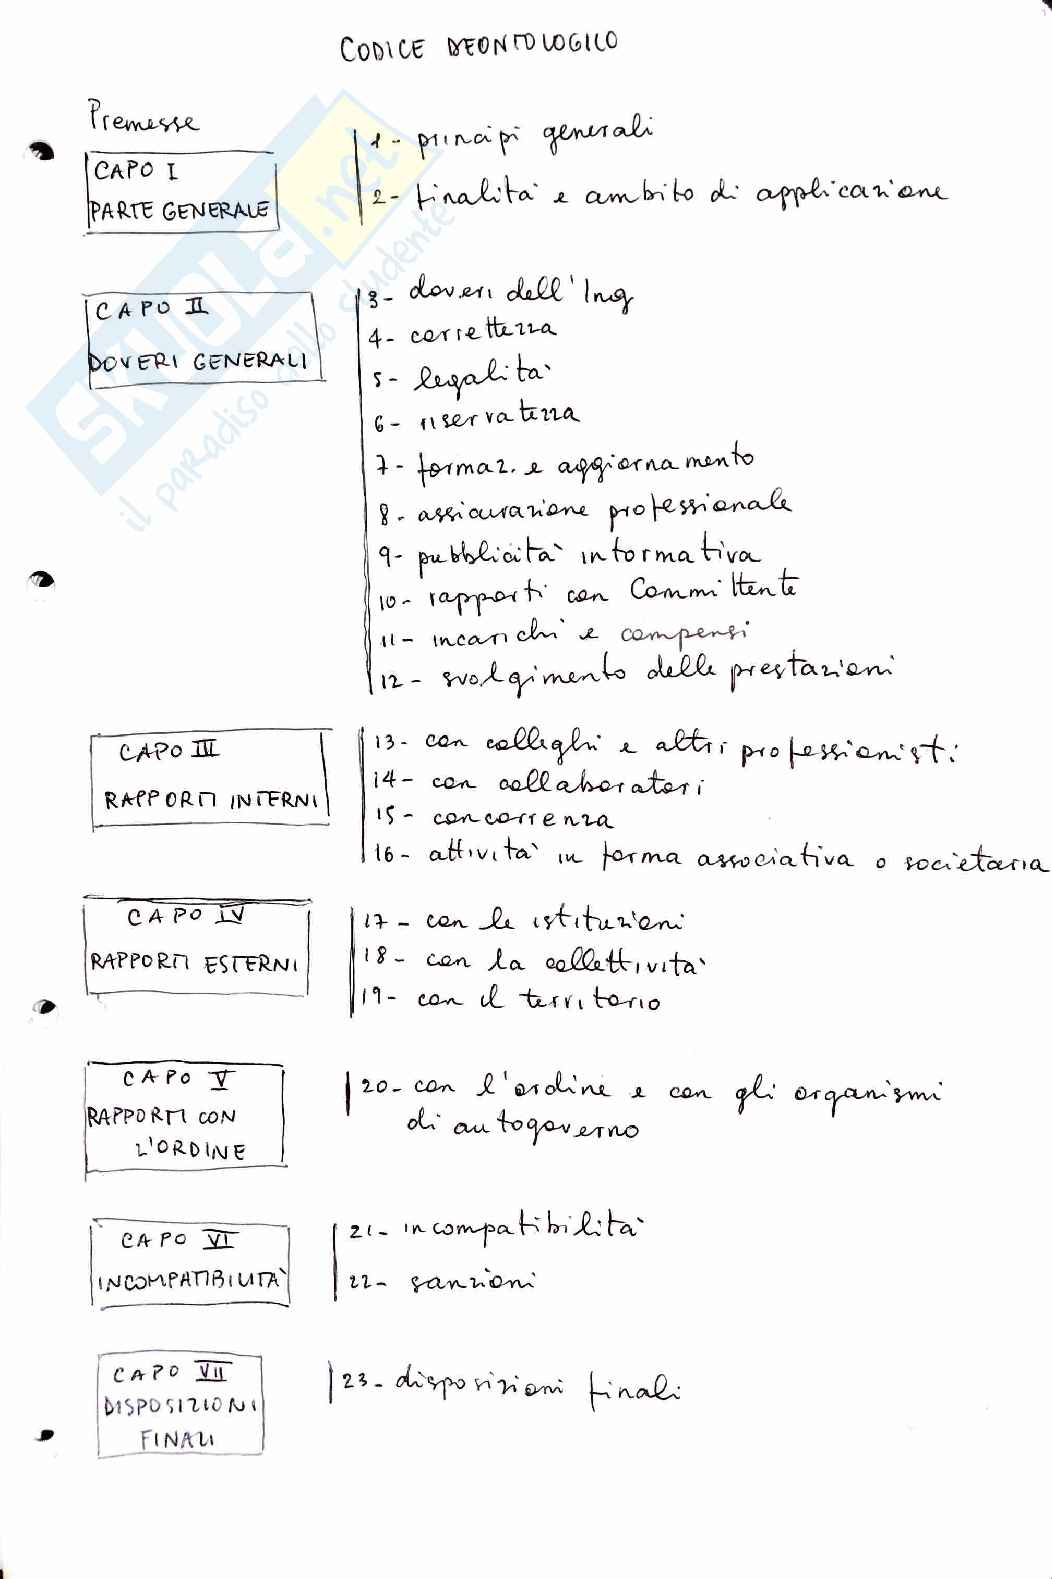 CODICE DEONTOLOGICO
Premesse
CAPO I
PARTE GENERALE
1- principi generali
2- finalità e ambito di applicazione
CAPO II
DOVERI GENERALI
3- doveri dell'Ing
4- correttezza
5- legalità
6- riservatezza
7- formaz. e aggiornamento
8- assicurazione professionale
9- pubblicità informativa
10- rapporti con Committente
11- incarichi e compensi
12- svolgimento delle prestazioni
CAPO III
RAPPORTI INTERNI
13- con colleghi e altri professionisti
14- con collaboratori
15- concorrenza
16- attività in forma associativa o societaria
CAPO IV
RAPPORTI ESTERNI
17- con le istituzioni
18- con la collettività
19- con il territorio
CAPO V
RAPPORTI CON
L'ORDINE
20- con l'ordine e con gli organismi
di autogoverno
CAPO VI
INCOMPATIBILITÀ
21- incompatibilità
22- sanzioni
CAPO VII
DISPOSIZIONI
FINALI
23- disposizioni finali
SKUOLA.net
il paradiso dello studente